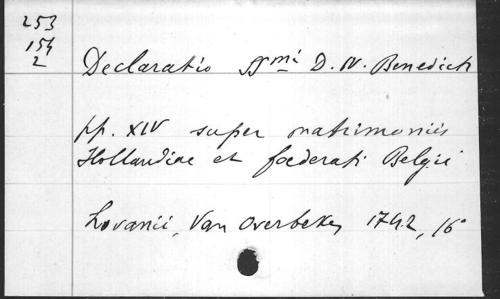 253
154
2
Declaratio SSmi D. N. Benedicti
pp. XIV super matrimoniis
Hollandiae et foederati Belgii
Lovanii, Van Overbeke, 1742, 16°